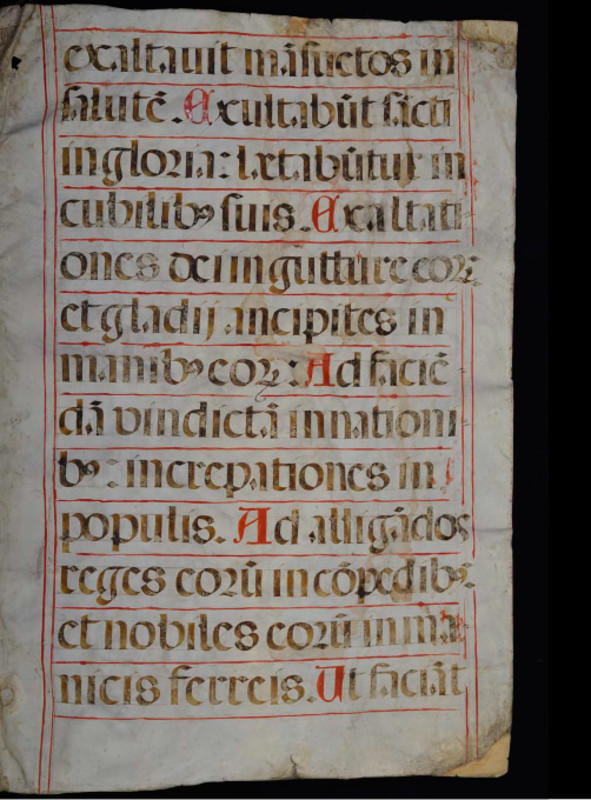 exaltauit mãsuetos in
salutẽ. Exultabũt sãcti
in gloria: letabũtur in
cubilibꝰ suis. Exaltati
ones dei in gutture eoꝝ:
et gladij ancipites in
manibꝰ eoꝝ: Ad faciẽ
dã vindictã in nationi
bꝰ: increpationes in
populis. Ad alligãdos
reges eorũ in cõpedibꝰ:
et nobiles eorũ in ma
nicis ferreis. Ut faciãt